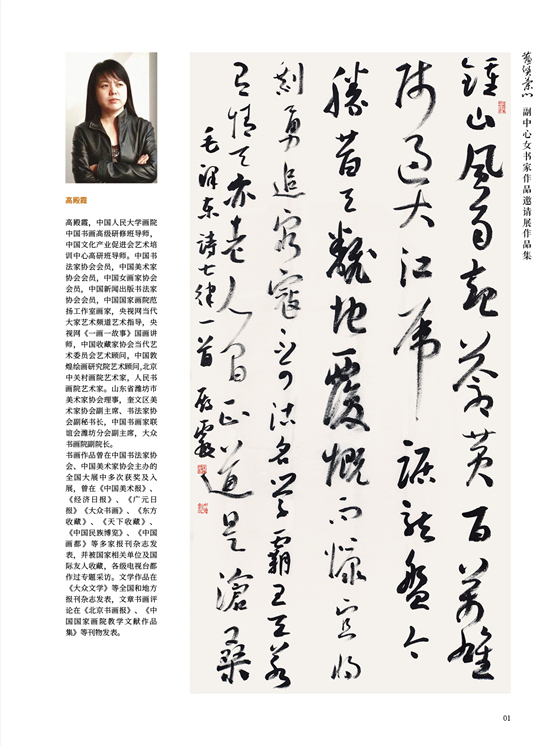 副中心女书家作品邀请展作品集
鍾山風雨起蒼黄百萬雄
師過大江虎踞龍盤今
勝昔天翻地覆慨而慷宜將
剩勇追窮寇不可沽名學霸王天若
有情天亦老人間正道是滄桑
毛澤東詩七律一首 殿霞
高殿霞
高殿霞，中国人民大学画院
中国书画高级研修班导师，
中国文化产业促进会艺术培
训中心高研班导师。中国书
法家协会会员，中国美术家
协会会员，中国女画家协会
会员，中国新闻出版书法家
协会会员，中国国家画院范
扬工作室画家，央视网当代
大家艺术频道艺术指导，央
视网《一画一故事》国画讲
师，中国收藏家协会当代艺
术委员会艺术顾问，中国敦
煌绘画研究院艺术顾问,北京
中关村画院艺术家，人民书
画院艺术家。山东省潍坊市
美术家协会理事，奎文区美
术家协会副主席、书法家协
会副秘书长，中国书画家联
谊会潍坊分会副主席，大众
书画院副院长。
书画作品曾在中国书法家协
会、中国美术家协会主办的
全国大展中多次获奖及入
展，曾在《中国美术报》、
《经济日报》、《广元日
报》《大众书画》、《东方
收藏》、《天下收藏》、
《中国民族博览》、《中国
画都》等多家报刊杂志发
表，并被国家相关单位及国
际友人收藏，各级电视台都
作过专题采访。文学作品在
《大众文学》等全国和地方
报刊杂志发表，文章书画评
论在《北京书画报》、《中
国国家画院教学文献作品
集》等刊物发表。
01